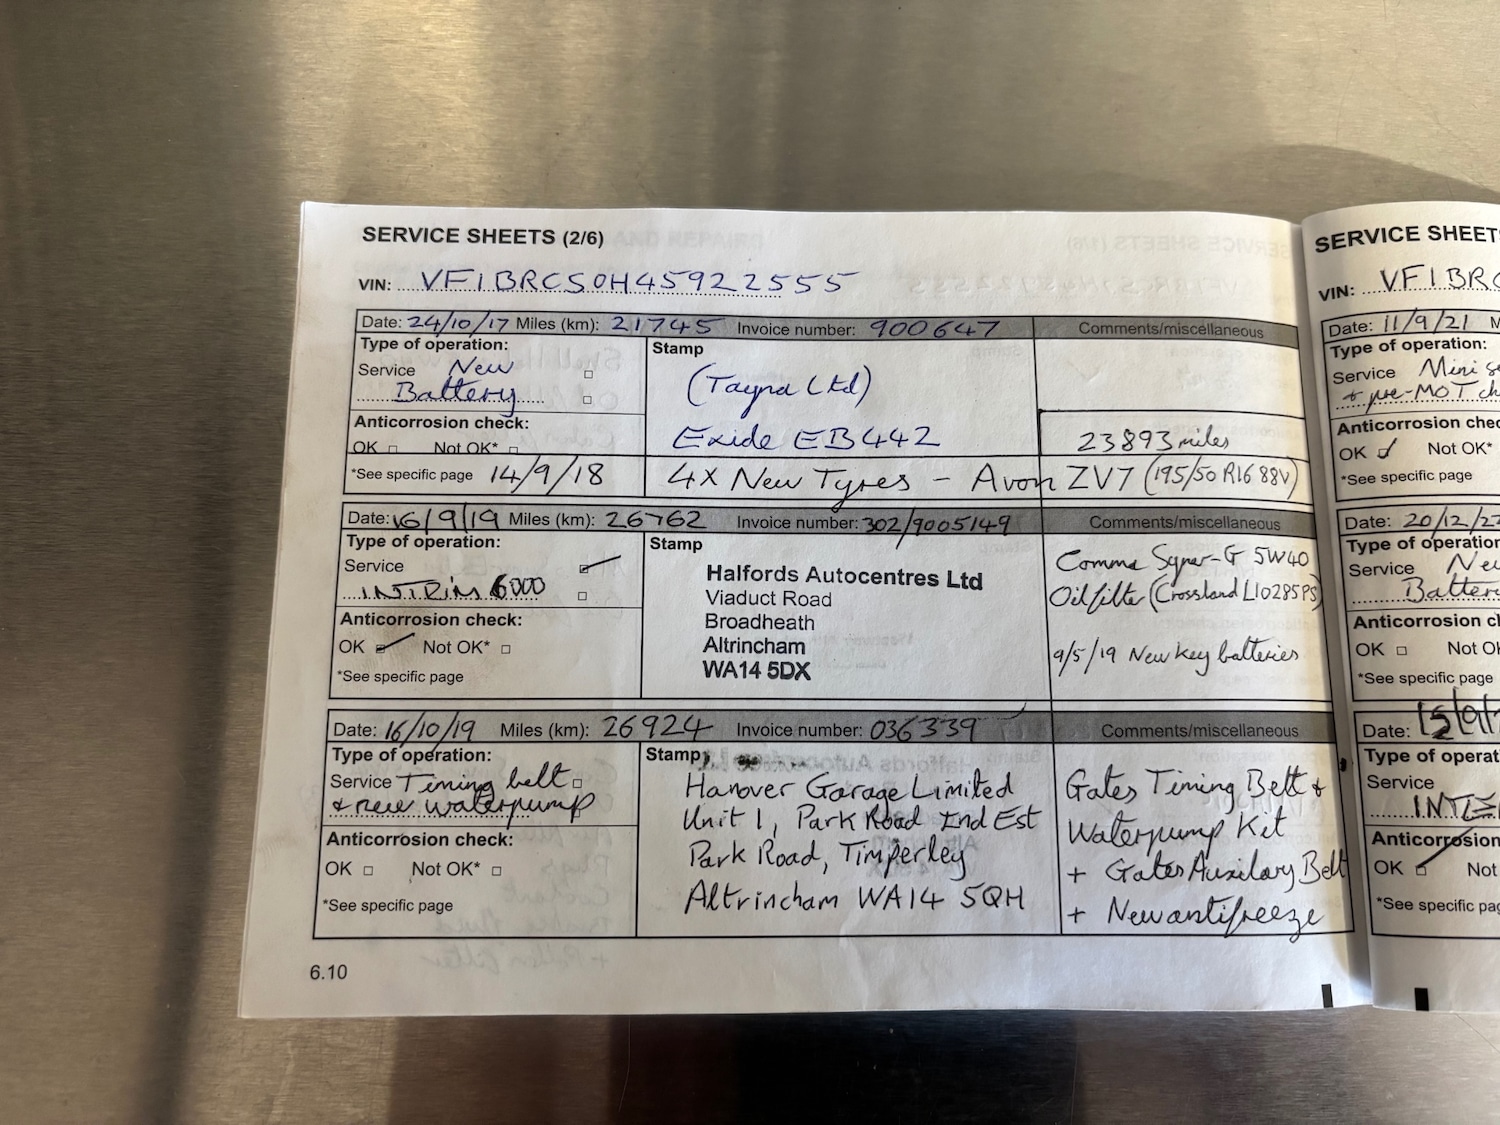 SERVICE SHEETS (2/6)
VIN: VF1BRCS0H45922555
Date: 24/10/17 Miles (km): 21745 Invoice number: 900647 Comments/miscellaneous
Type of operation:
Service New
Battery
Anticorrosion check:
OK Not OK*
*See specific page 14/9/18
Stamp
(Tayna Ltd)
Exide EB442
23893 miles
4X New Tyres - Avon ZV7 (195/50 R16 88V)
Date: 16/9/19 Miles (km): 26762 Invoice number: 302/9005149 Comments/miscellaneous
Type of operation:
Service
INTRIM 6000
Anticorrosion check:
OK Not OK*
*See specific page
Stamp
Halfords Autocentres Ltd
Viaduct Road
Broadheath
Altrincham
WA14 5DX
Comma Syner-G 5W40
Oil filter (Crossland L10285PS)
9/5/19 New key batteries
Date: 16/10/19 Miles (km): 26924 Invoice number: 036339 Comments/miscellaneous
Type of operation:
Service Timing belt
& new waterpump
Anticorrosion check:
OK Not OK*
*See specific page
Stamp
Hanover Garage Limited
Unit 1, Park Road Ind Est
Park Road, Timperley
Altrincham WA14 5QH
Gates Timing Belt &
Waterpump Kit
+ Gates Auxilary Belt
+ New antifreeze
6.10
SERVICE SHEET
VIN: VF1BR
Date: 11/9/21
Type of operation:
Service Mini
+ pre-MOT
Anticorrosion
OK Not OK*
*See specific page
Date: 20/12/
Type of operation
Service
Anticorrosion
OK Not
*See specific page
Date:
Type of
Service
Anticorrosion
OK Not
*See specific